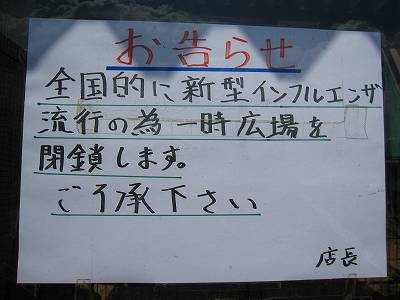 お告らせ
全国的に新型インフルエンザ
流行の為一時広場を
閉鎖します。
ごう承下さい
店長